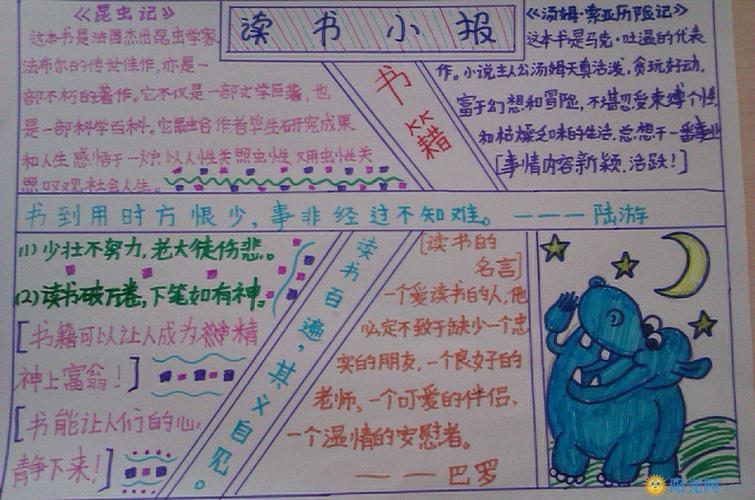 读书小报
《昆虫记》
这本书是法国杰出昆虫学家
法布尔的传世佳作,亦是一
部不朽的著作。它不仅是一部文学巨著,也
是一部科学百科。它昆虫合作者毕生研究成果
和人生感悟于一炉以人性关照虫性又用虫性关
照社会人生。
书籍
《汤姆·索亚历险记》
这本书是马克·吐温的代表
作。小说主人公汤姆天真活泼,贪玩好动,
富于幻想和冒险,不堪忍受束缚个性
和枯燥乏味的生活,总想干一番事业
[事情内容新颖,活跃!]
书到用时方恨少,事非经过不知难。———陆游
(1)少壮不努力,老大徒伤悲。
(2)读书破万卷,下笔如有神。
[书籍可以让人成为精
神上富翁!]
[书能让人们的心
静下来!]
读书百遍,其义自见。
[读书的
名言]
一个爱读书的人,他
必定不致于缺少一个忠
实的朋友,一个良好的
老师、一个可爱的伴侣、
一个温情的安慰者。
——巴罗
阳光网